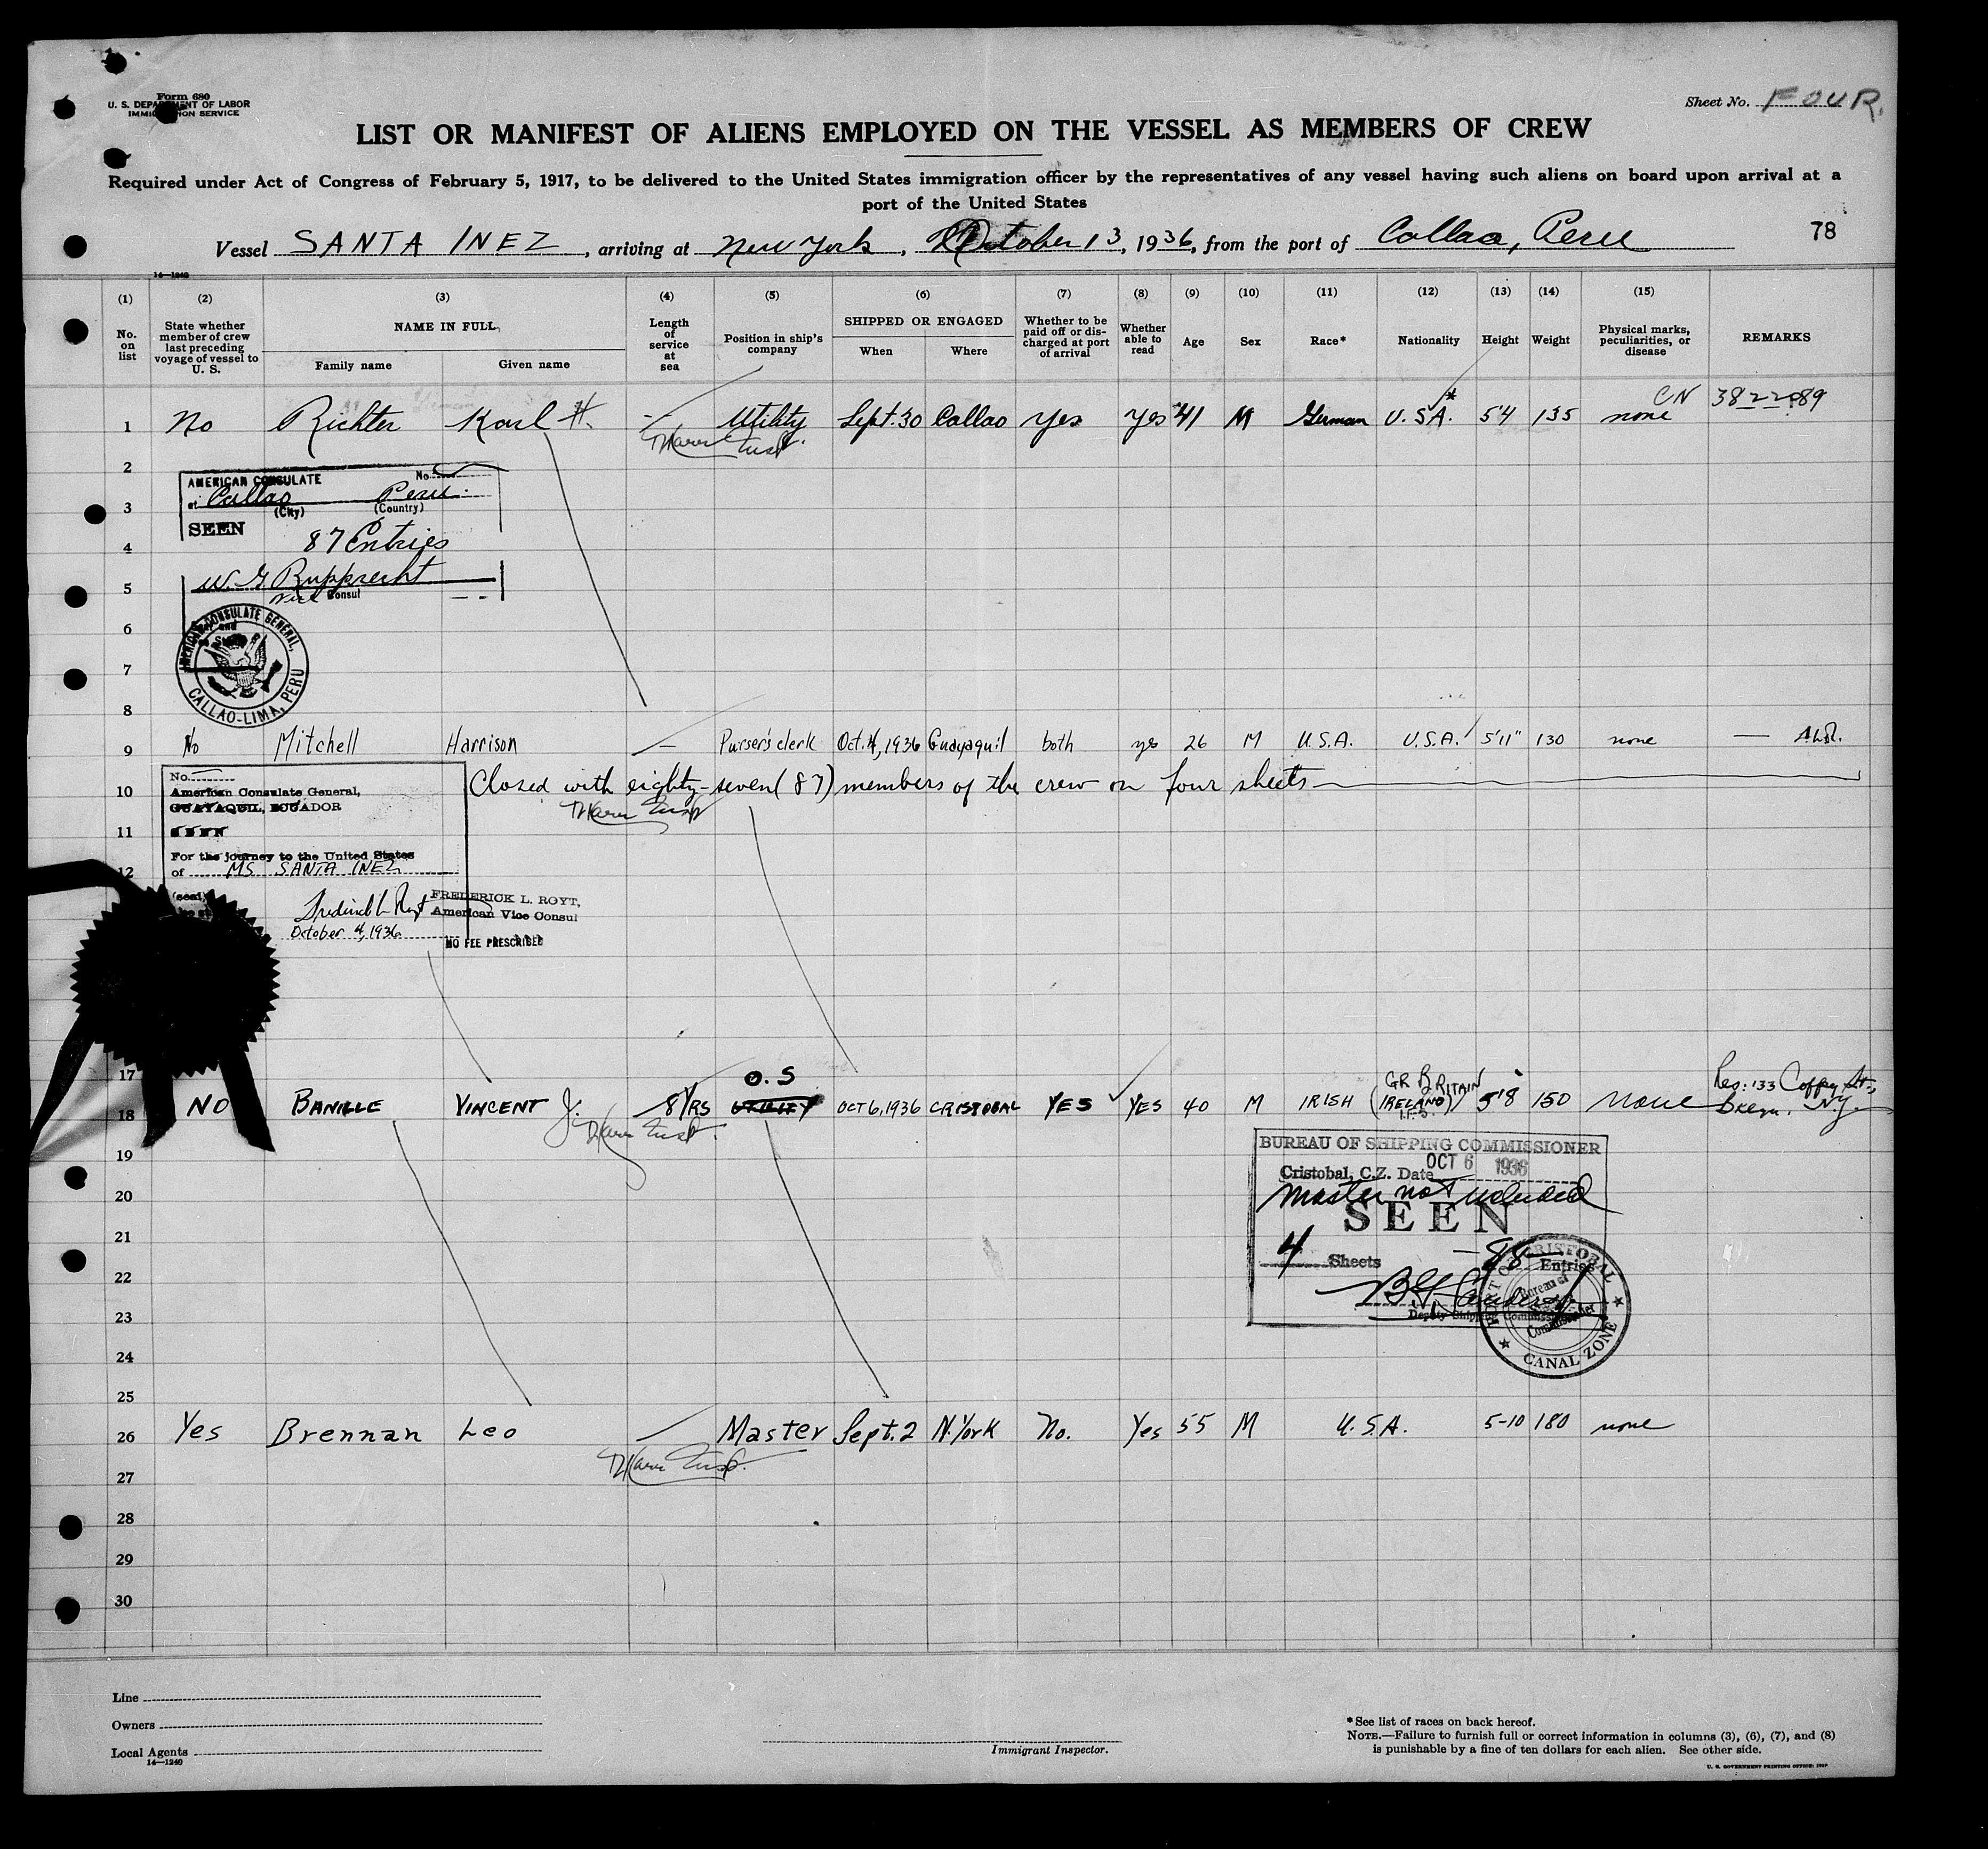 Form 680
U. S. DEPARTMENT OF LABOR
IMMIGRATION SERVICE
Sheet No. FOUR.
LIST OR MANIFEST OF ALIENS EMPLOYED ON THE VESSEL AS MEMBERS OF CREW
Required under Act of Congress of February 5, 1917, to be delivered to the United States immigration officer by the representatives of any vessel having such aliens on board upon arrival at a
port of the United States
Vessel SANTA INEZ, arriving at New York, October 13, 1936, from the port of Callao, Peru
78
14—1240
(1) (2) (3) (4) (5) (6) (7) (8) (9) (10) (11) (12) (13) (14) (15)
No. on list
State whether member of crew last preceding voyage of vessel to U. S.
NAME IN FULL
Family name Given name
Length of service at sea
Position in ship's company
SHIPPED OR ENGAGED
When Where
Whether to be paid off or discharged at port of arrival
Whether able to read
Age
Sex
Race*
Nationality
Height
Weight
Physical marks, peculiarities, or disease
REMARKS
CN
1 No Richter Karl H. — Utility Sept. 30 Callao Yes Yes 41 M German U.S.A. 5'4 135 none
2
AMERICAN CONSULATE No.
at Callao Peru.
3
(City) (Country)
SEEN
4
87 Entries
W. G. Rupprecht
5
Vice Consul
6
AMERICAN CONSULATE GENERAL,
CALLAO-LIMA, PERU
7
8
9 No Mitchell Harrison — Purser's clerk Oct. 4, 1936 Guayaquil both yes 26 M U.S.A. U.S.A. 5'11" 130 none —
No.
10 Closed with eighty-seven (87) members of the crew on four sheets
American Consulate General,
GUAYAQUIL, ECUADOR
11
SEEN
For the journey to the United States
12
of MS SANTA INEZ
(seal)
Frederick L. Royt
FREDERICK L. ROYT,
American Vice Consul
October 4, 1936
NO FEE PRESCRIBED
17
O.S
18 NO BANILLE VINCENT J. 8 YRS UTILITY OCT 6, 1936 CRISTOBAL YES YES 40 M IRISH GR BRITAIN (IRELAND) 5'8 150 none Res: 133 Coffey St., NY.
19
BUREAU OF SHIPPING COMMISSIONER
Cristobal, C.Z. Date OCT 6 1936
20
Master not included
SEEN
21
4 Sheets —88— Entries
22
Deputy Shipping Commissioner
PORT OF CRISTOBAL
Bureau of
Commissioner
CANAL ZONE
23
24
25
26 Yes Brennan Leo Master Sept. 2 N. York No. Yes 55 M U.S.A. 5-10 180 none
27
28
29
30
Line
Owners
Local Agents
14—1240
Immigrant Inspector.
*See list of races on back hereof.
NOTE.—Failure to furnish full or correct information in columns (3), (6), (7), and (8)
is punishable by a fine of ten dollars for each alien. See other side.